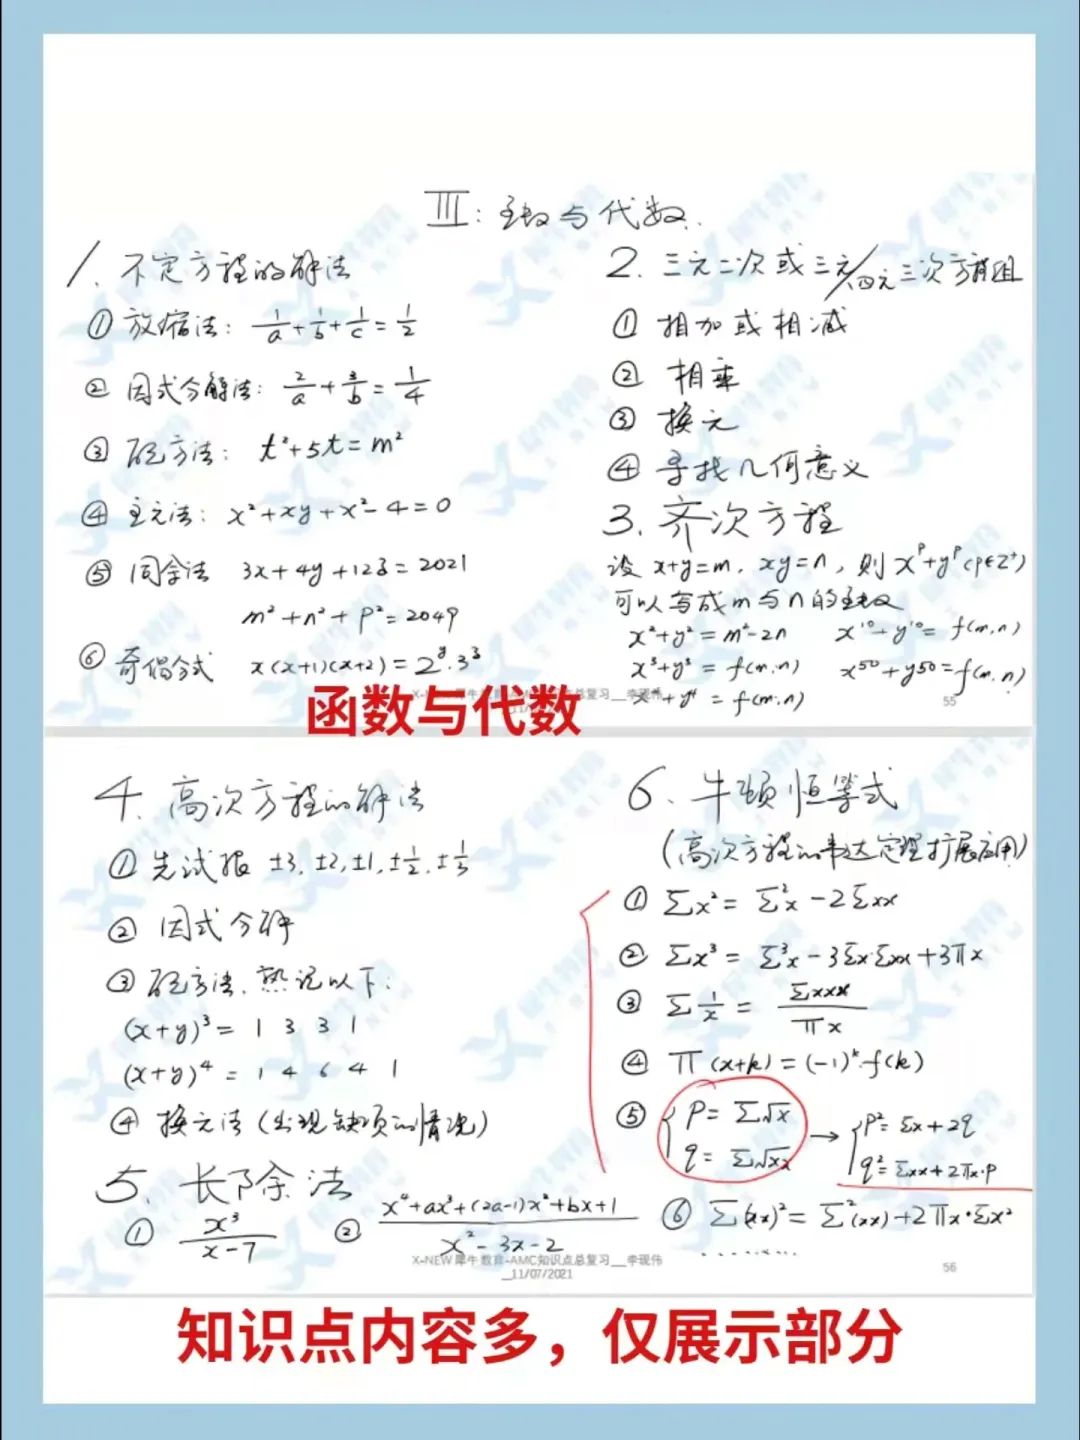 III: 函数与代数.
1. 不定方程的解法
① 放缩法: 1/a + 1/b + 1/c = 1/2
② 因式分解法: 2/a + 3/b = 1/4
③ 配方法: t²+5t=m²
④ 主元法: x²+xy+x²-4=0
⑤ 同余法 3x+4y+123=2021
m²+n²+p²=2049
⑥ 奇偶分式 x(x+1)(x+2)=2^8·3^3
2. 三元二次或三元/四元三次方程组
① 相加或相减
② 相乘
③ 换元
④ 寻找几何意义
3. 齐次方程
设 x+y=m, xy=n, 则 x^p+y^p (p∈Z⁺)
可以写成m与n的函数
x²+y²=m²-2n x^10+y^10=f(m,n)
x³+y³=f(m,n) x^50+y^50=f(m,n)
x⁴+y⁴=f(m,n)
函数与代数
55
4. 高次方程的解法
① 先试根 ±3, ±2, ±1, ±1/2, ±1/3
② 因式分解
③ 配方法, 熟记以下:
(x+y)³= 1 3 3 1
(x+y)⁴= 1 4 6 4 1
④ 换元法 (出现缺项的情况)
5. 长除法
① x³/(x-7) ② (x⁴+ax³+(2a-1)x²+bx+1)/(x²-3x-2)
6. 牛顿恒等式
(高次方程的韦达定理扩展应用)
① Σx²=Σ²x-2Σxx
② Σx³=Σ³x-3Σx·Σxx+3πx
③ Σ1/x=Σxxx/πx
④ π(x+k)=(-1)^k·f(k)
⑤ { p=Σ√x q=Σ√xx → { p²=Σx+2q q²=Σxx+2πx·p
⑥ Σ(xx)²=Σ²(xx)+2πx·Σx²
..........
X-NEW 犀牛教育-AMC知识点总复习__李现伟
__11/07/2021
56
知识点内容多，仅展示部分